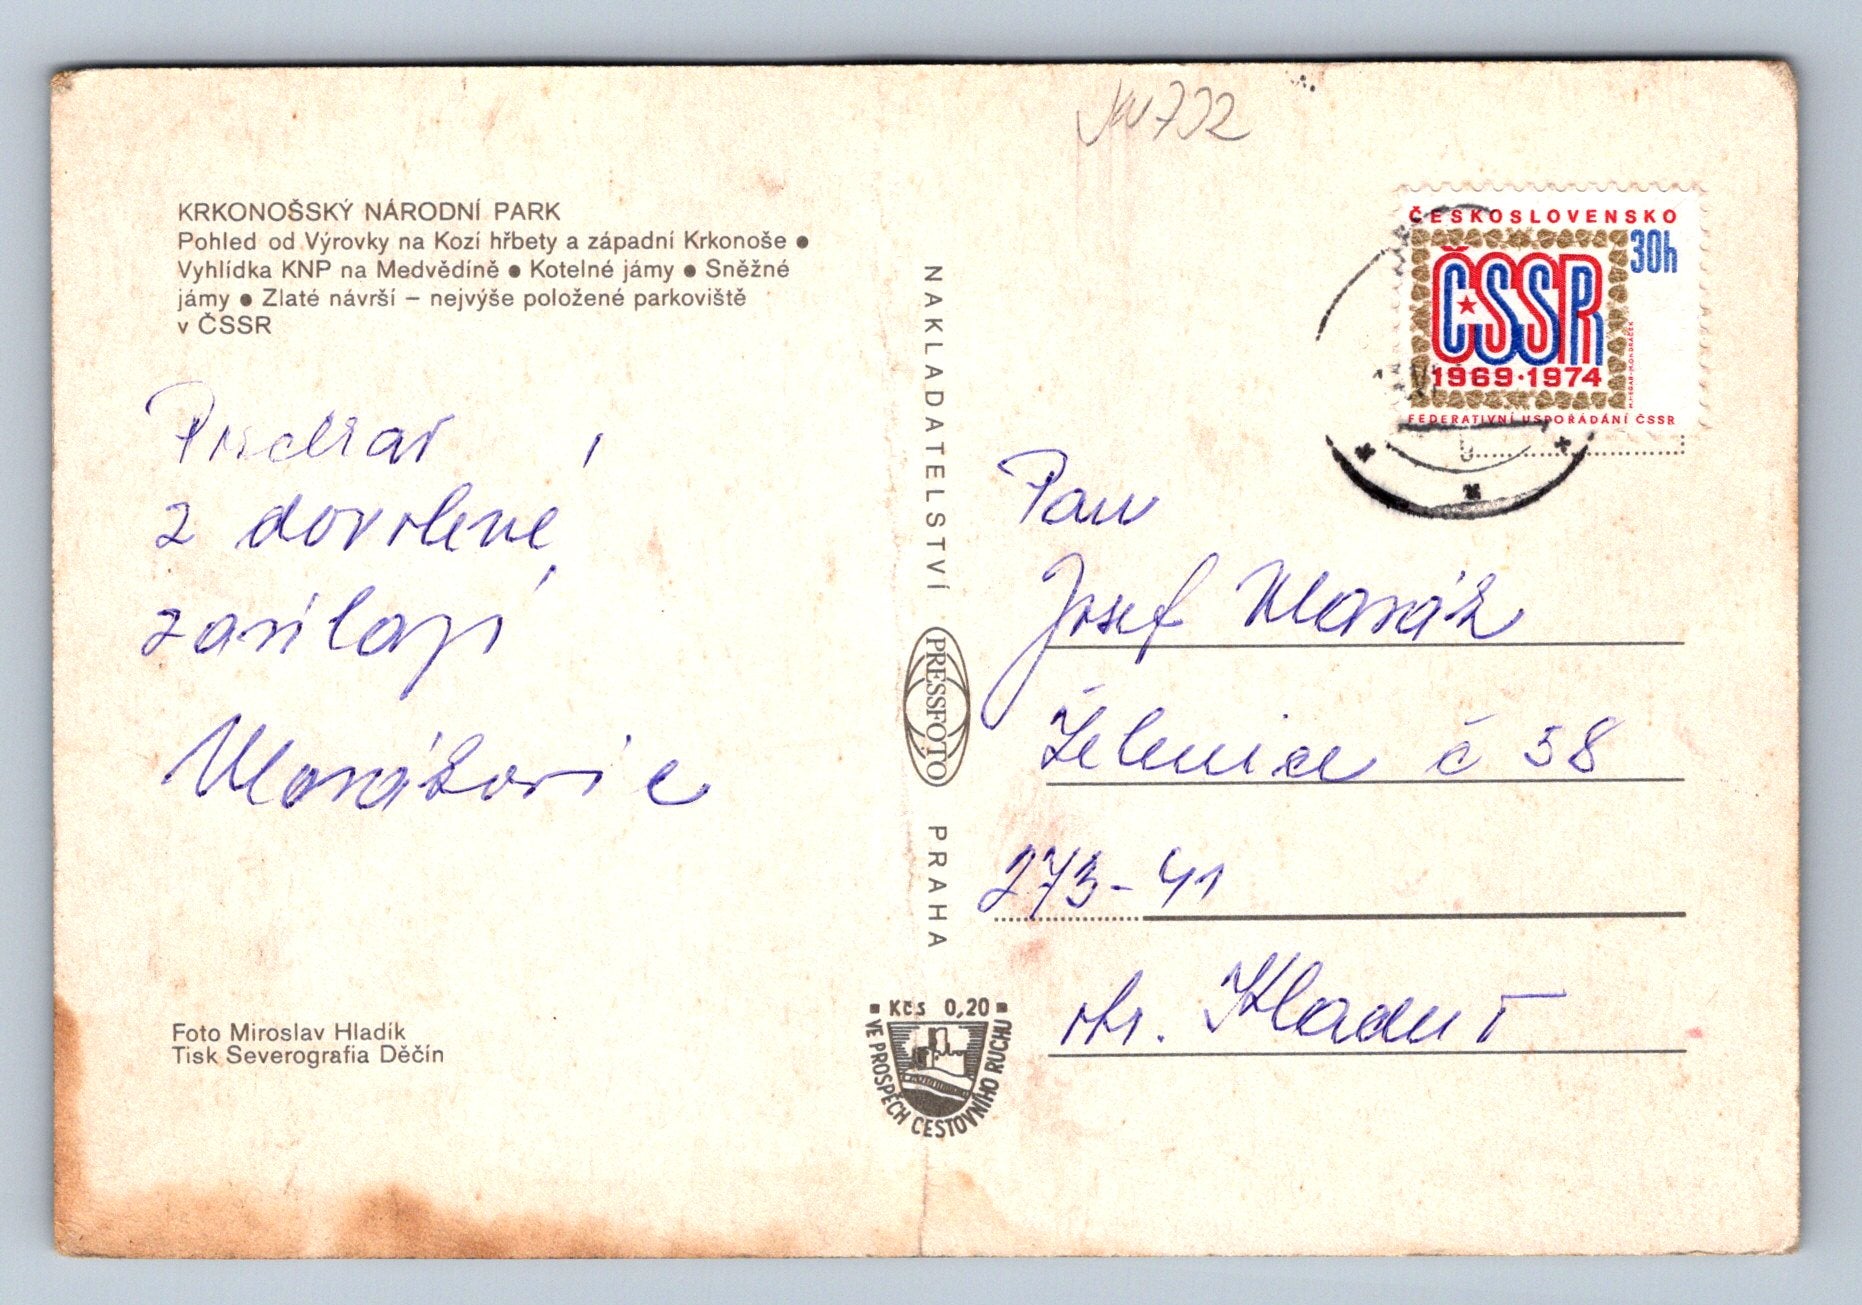 KRKONOŠSKÝ NÁRODNÍ PARK
Pohled od Výrovky na Kozí hřbety a západní Krkonoše ●
Vyhlídka KNP na Medvědíně ● Kotelné jámy ● Sněžné
jámy ● Zlaté návrší – nejvýše položené parkoviště
v ČSSR
Pozdrav
z dovolené
zasílají
Foto Miroslav Hladík
Tisk Severografia Děčín
NAKLADATELSTVÍ
PRESSFOTO
PRAHA
Kčs 0,20
VE PROSPĚCH CESTOVNÍHO RUCHU
ČESKOSLOVENSKO
30h
ČSSR
1969·1974
FEDERATIVNÍ USPOŘÁDÁNÍ ČSSR
Pan
Josef
Želenice č 58
273-41
okr. Kladno